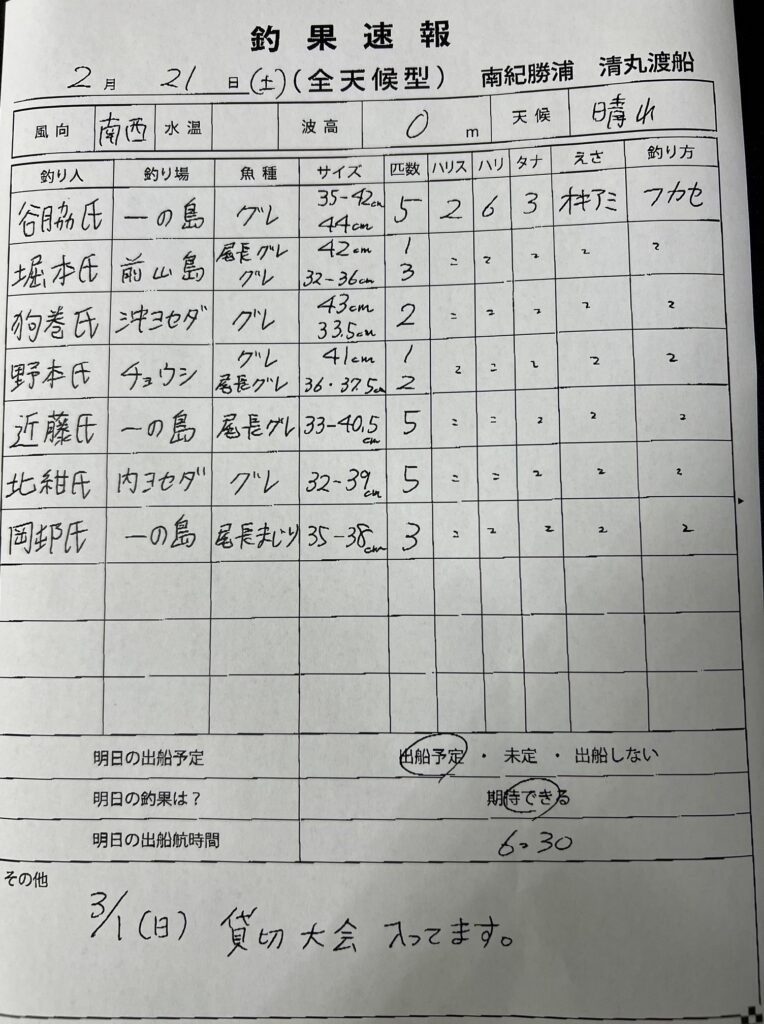 釣果速報
2月 21日(土)(全天候型) 南紀勝浦 清丸渡船
風向 南西 水温 波高 0 m 天候 晴れ
釣り人 釣り場 魚種 サイズ 匹数 ハリス ハリ タナ えさ 釣り方
谷脇氏 一の島 グレ 35-42cm 44cm 5 2 6 3 オキアミ フカセ
堀本氏 前山島 尾長グレ 42cm 1
グレ 32-36cm 3 〃 〃 〃 〃 〃
狗巻氏 沖ヨセダ グレ 43cm 33.5cm 2 〃 〃 〃 〃 〃
野本氏 チョウシ グレ 41cm 1
尾長グレ 36・37.5cm 2 〃 〃 〃 〃 〃
近藤氏 一の島 尾長グレ 33-40.5cm 5 〃 〃 〃 〃 〃
北紺氏 内ヨセダ グレ 32-39cm 5 〃 〃 〃 〃 〃
岡邨氏 一の島 尾長まじり 35-38cm 3 〃 〃 〃 〃 〃
明日の出船予定 出船予定・未定・出船しない
明日の釣果は? 期待できる
明日の出船航時間 6:30
その他
3/1(日) 貸切大会 入ってます。